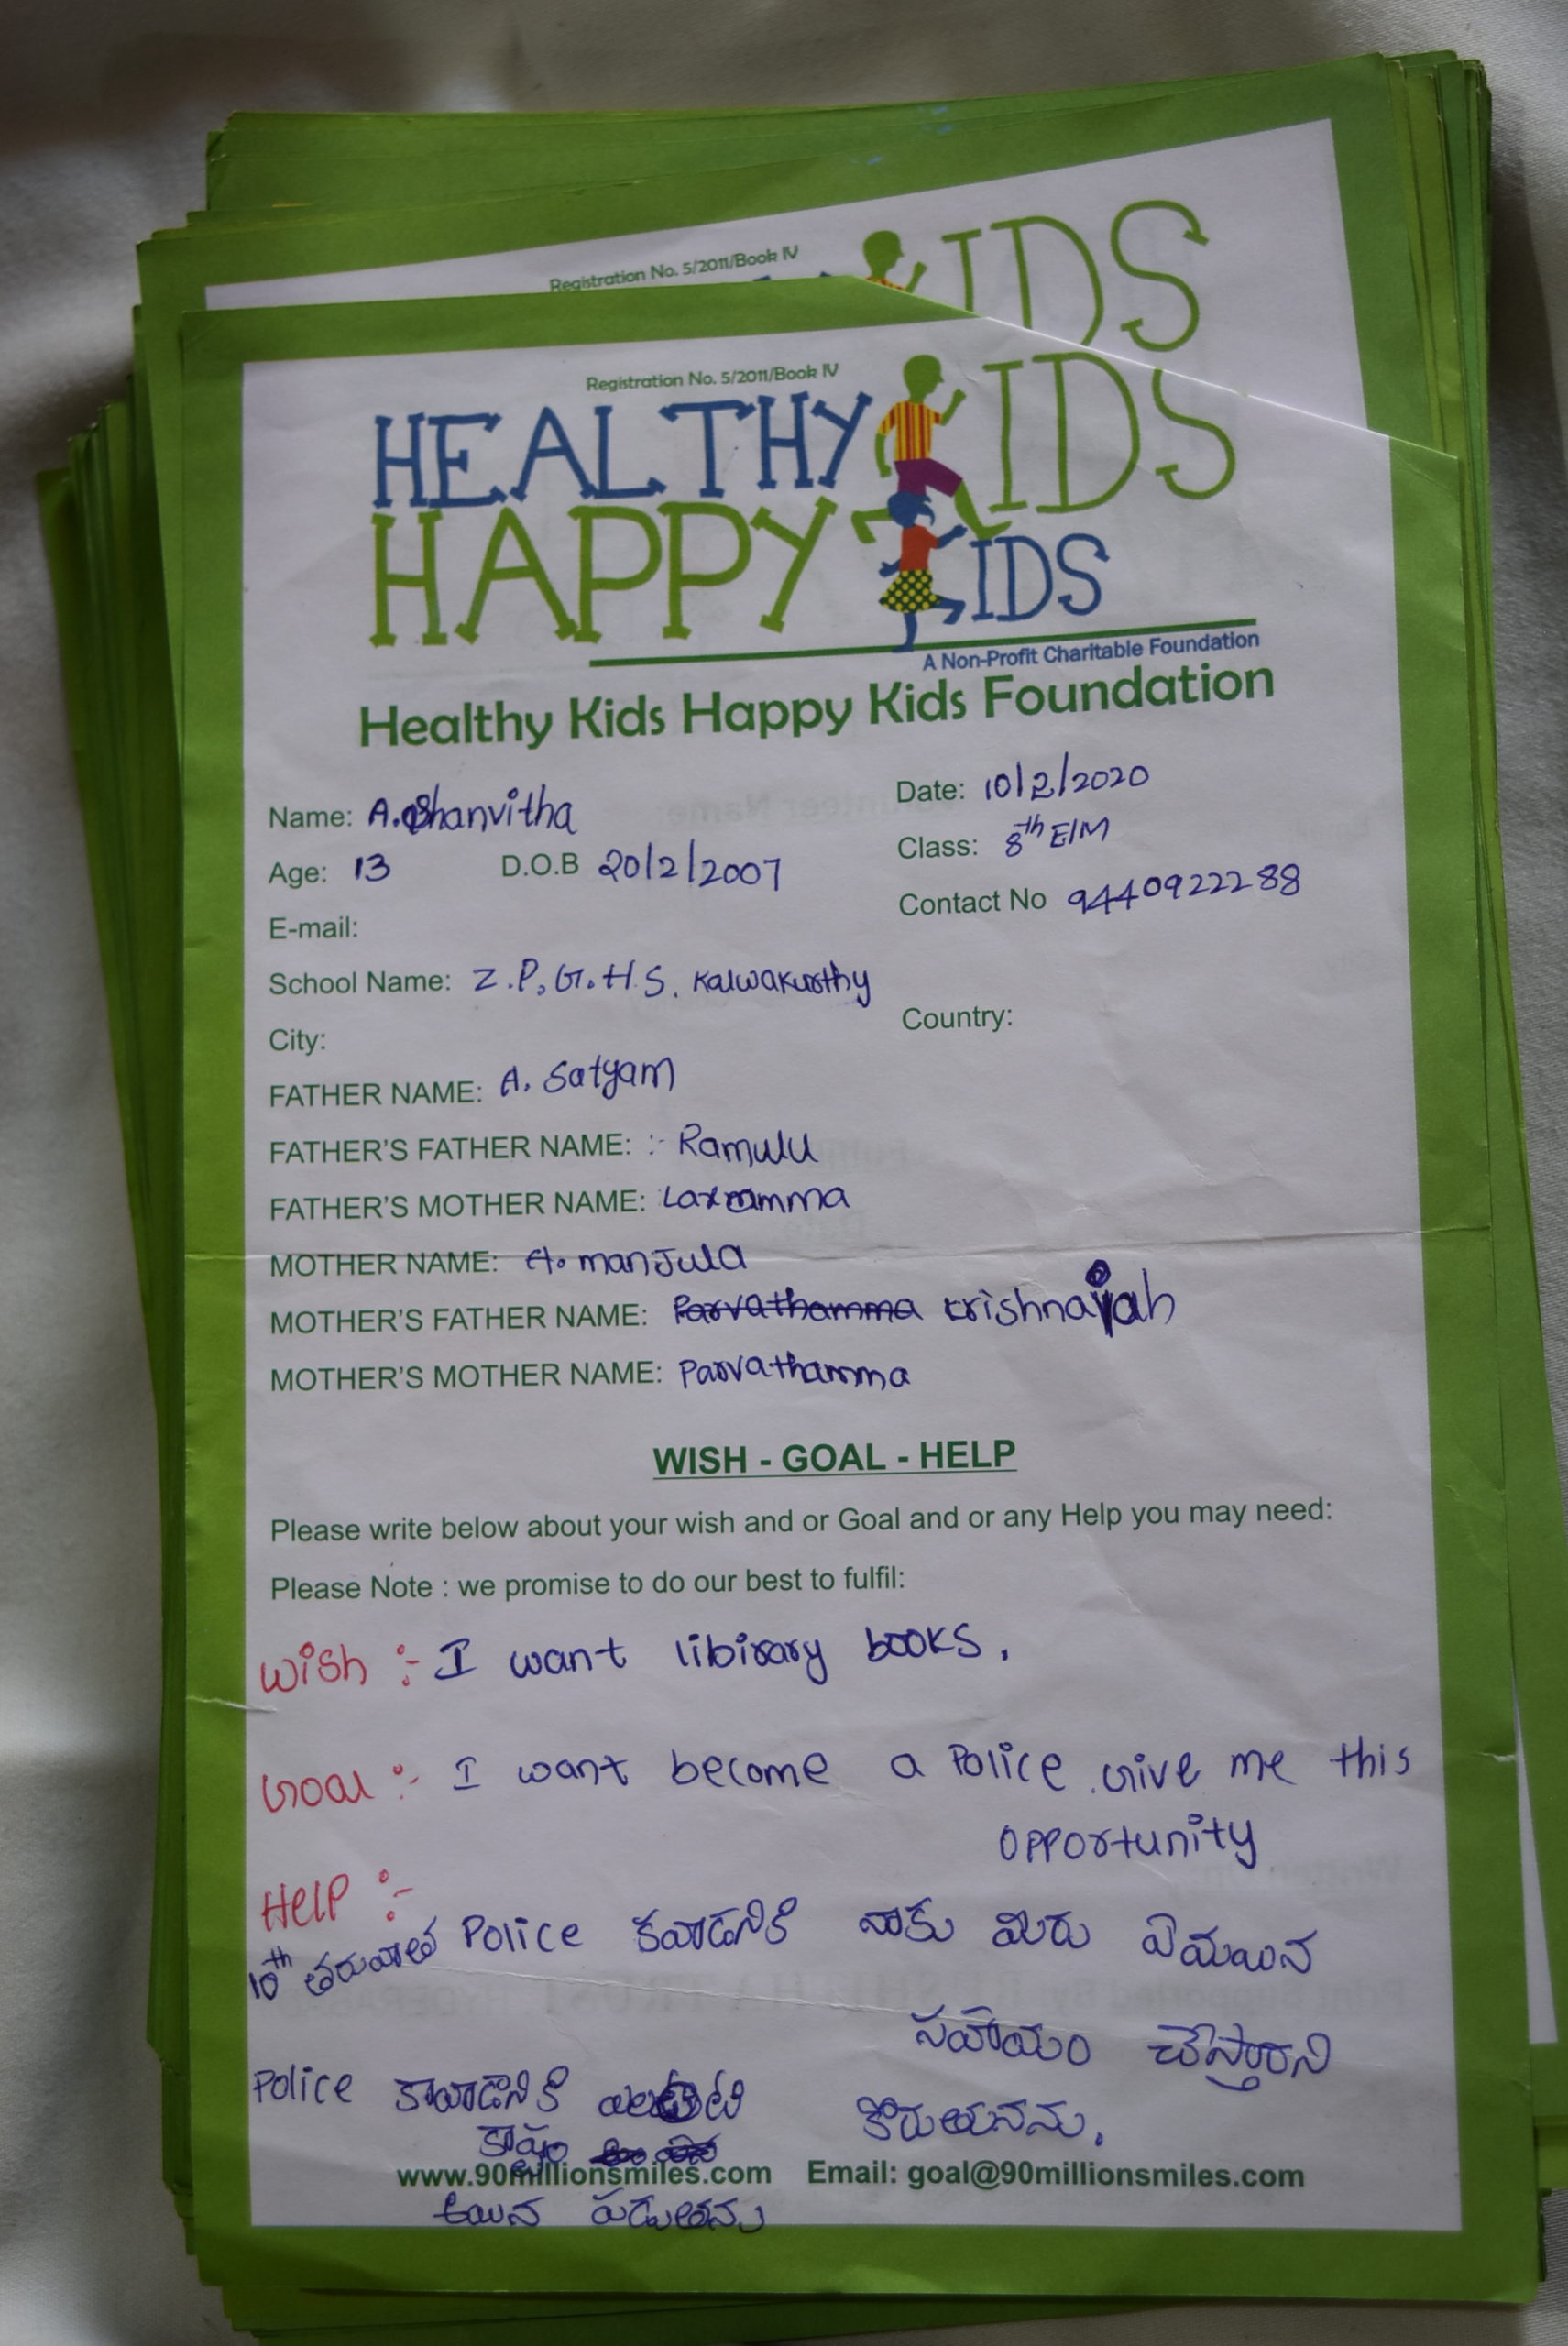 Registration No. 5/2011/Book IV
IDS
Registration No. 5/2011/Book IV
HEALTHY KIDS
HAPPY KIDS
A Non-Profit Charitable Foundation
Healthy Kids Happy Kids Foundation
Name: A. Dhanvitha Date: 10/2/2020
Age: 13 D.O.B 20/2/2007 Class: 8th E/M
E-mail: Contact No 9440922288
School Name: Z.P.G.H.S. Kalwakurthy
City: Country:
FATHER NAME: A. Satyam
FATHER'S FATHER NAME: :- Ramulu
FATHER'S MOTHER NAME: Laxmamma
MOTHER NAME: A. manJula
MOTHER'S FATHER NAME: Parvathamma krishnaiah
MOTHER'S MOTHER NAME: Parvathamma
WISH - GOAL - HELP
Please write below about your wish and or Goal and or any Help you may need:
Please Note : we promise to do our best to fulfil:
Wish :- I want librirary books.
Goal :- I want become a Police. Give me this
opportunity
Help :-
10th తరువాత Police కవాడనికి నాకు మిరు ఏమయిన
సహాయం చేస్తారని
Police కావాడానికి
కోరుతునను.
కాష్టం
www.90millionsmiles.com Email: goal@90millionsmiles.com
అయిన పడుతను